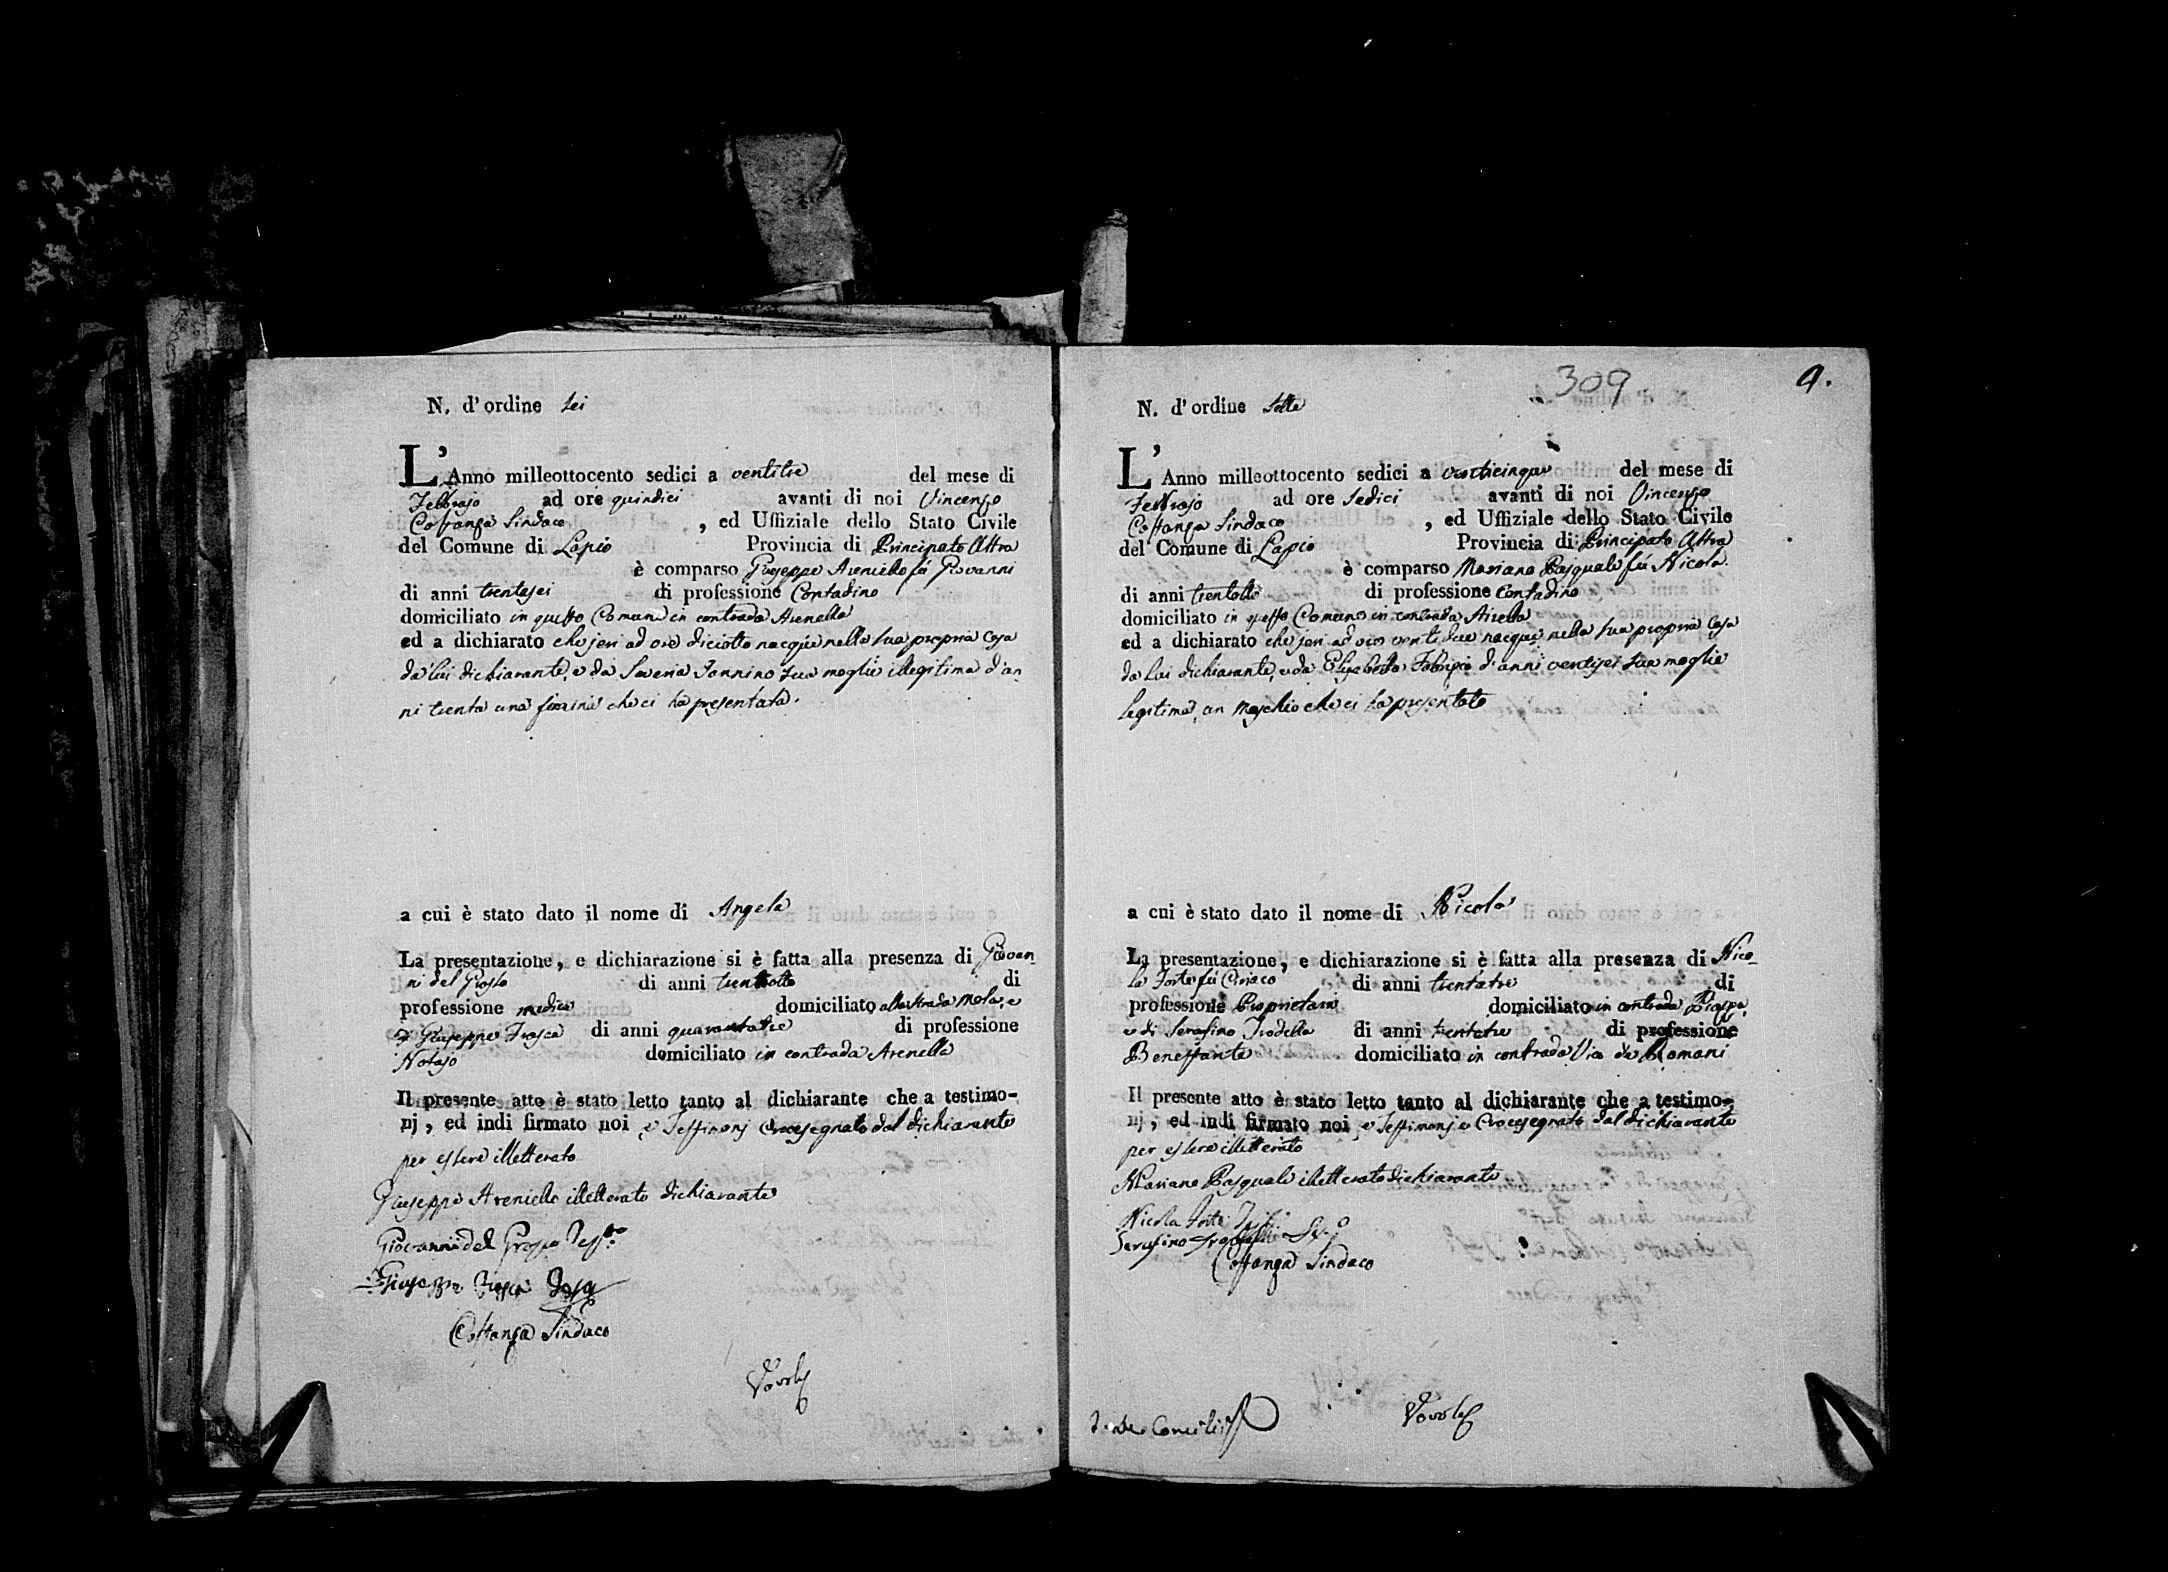 N. d'ordine sei
L'Anno milleottocento sedici a ventitre del mese di
Febbrajo ad ore quindici avanti di noi Vincenzo
Costanza Sindaco, ed Uffiziale dello Stato Civile
del Comune di Lapio Provincia di Principato Ultra
è comparso Giuseppe Areniello fù Giovanni
di anni trentasei di professione Contadino
domiciliato in questo Comune in contrada Arenella
ed a dichiarato che jeri ad ore diciotto nacque nella sua propria casa
da lui dichiarante, e da Saveria Iannino sua moglie illegitima d'an
ni trenta una fimina che ci ha presentata.
a cui è stato dato il nome di Angela
La presentazione, e dichiarazione si è fatta alla presenza di Giovan
ni del Grosso di anni trentotto di
professione medico domiciliato alla strada Mola, e
di Giuseppe Frasca di anni quarantatre di professione
Notajo domiciliato in contrada Arenella
Il presente atto è stato letto tanto al dichiarante che a testimo-
nj, ed indi firmato noi, e Testimonj Crocesegnato dal dichiarante
per essere illetterato
Giuseppe Areniello illetterato dichiarante
Giovanni del Grosso
Giuseppe
Costanza Sindaco
309
9.
N. d'ordine sette
L'Anno milleottocento sedici a venticinque del mese di
Febbrajo ad ore sedici avanti di noi Vincenzo
Costanza Sindaco, ed Uffiziale dello Stato Civile
del Comune di Lapio Provincia di Principato Ultra
è comparso Mariano Pasquale fù Nicola.
di anni trentotto di professione Contadino
domiciliato in questo Comune in contrada Airella
ed a dichiarato che jeri ad ore ventidue nacque nella sua propria casa
da lui dichiarante, e da Elisabetta Fabrizio d'anni ventisei sua moglie
legitima, un maschio che ci ha presentato
a cui è stato dato il nome di Nicola
La presentazione, e dichiarazione si è fatta alla presenza di Nico-
la Forte fù Ciriaco di anni trentatre di
professione Proprietario domiciliato in contrada Piazza,
e di Serafino Trodella di anni trentatre di professione
Benestante domiciliato in contrada Via de Romani
Il presente atto è stato letto tanto al dichiarante che a testimo-
nj, ed indi firmato noi, e Testimonj e Crocesegnato dal dichiarante
per essere illetterato
Mariano Pasquale illetterato dichiarante
Nicola Forte
Serafino
Costanza Sindaco